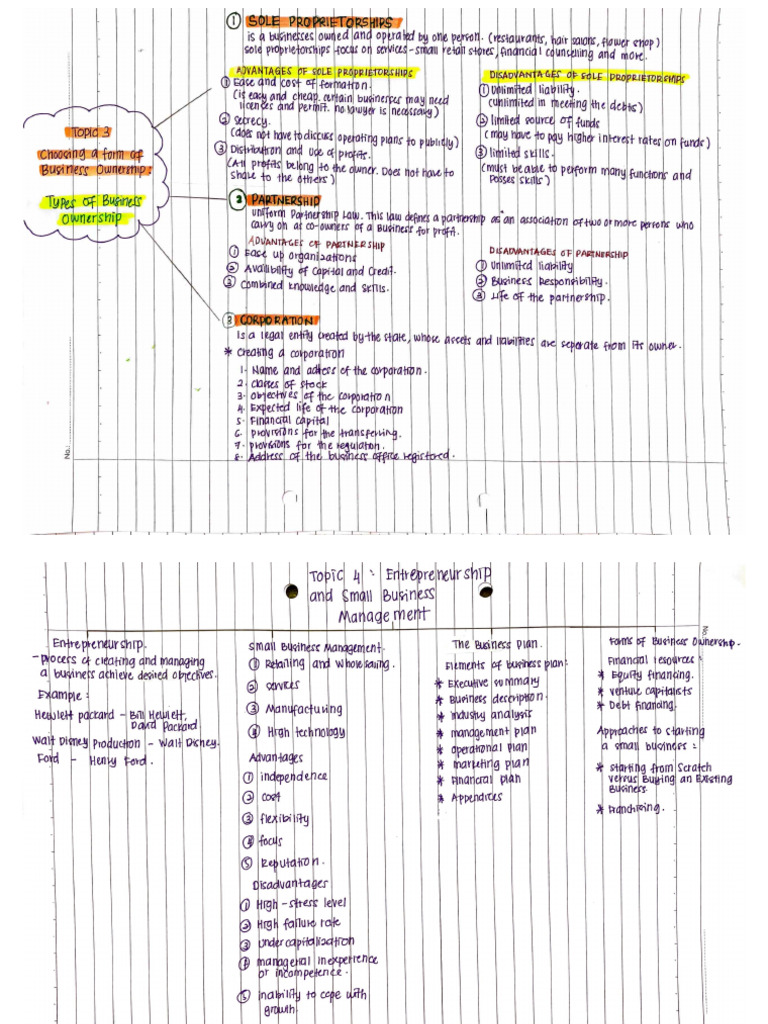 1 SOLE PROPRIETORSHIPS
is a businesses owned and operated by one person. (restaurants, hair salons, flower shop)
sole proprietorships focus on services - small retail stores, financial counselling and more.
ADVANTAGES OF SOLE PROPRIETORSHIPS
1 Ease and cost of formation.
(is easy and cheap. certain businesses may need
licences and permit. no lawyer is necessary)
2 secrecy.
(does not have to discuss operating plans to publicly)
3 Distribution and use of profits.
(All profits belong to the owner. Does not have to
share to the others)
DISADVANTAGES OF SOLE PROPRIETORSHIPS
1 Unlimited liability.
(unlimited in meeting the debts)
2 limited source of funds
(may have to pay higher interest rates on funds)
3 limited skills.
(must be able to perform many functions and
posses skills)
Topic 3
Choosing a form of
Business Ownership:
Types of Business
Ownership
2 PARTNERSHIP
Uniform Partnership Law. This law defines a partnership as "an association of two or more persons who
carry on as co-owners of a Business for profit.
ADVANTAGES OF PARTNERSHIP
1 Ease up organizations
2 Availibility of Capital and Credit.
3 Combined knowledge and skills.
DISADVANTAGES OF PARTNERSHIP
1 Unlimited liability
2 Business Responsibility.
3 Life of the partnership.
3 CORPORATION
Is a legal entity created by the state, whose assets and liabilities are seperate from its owner.
* Creating a corporation
1. Name and adress of the corporation.
2. classes of stock
3. objectives of the corporation
4. Expected life of the corporation
5. Financial capital
6. provisions for the transferring.
7. provisions for the regulation.
8. Address of the business office registered.
No.:
Topic 4 : Entrepreneurship
and Small Business
Management
No
Entrepreneurship.
- Process of creating and managing
a business achieve desired objectives.
Example :
Hewlett packard - Bill Hewlett,
David Packard
Walt Disney production - Walt Disney.
Ford - Henry Ford.
Small Business Management.
1 Retailing and wholesaling.
2 services
3 Manufacturing
4 High technology
Advantages
1 independence
2 cost
3 flexibility
4 focus
5 Reputation.
Disadvantages
1 High - stress level
2 High failure rate
3 undercapitalization
4 managerial inexperience
or incompetence.
5 Inability to cope with
growth.
The Business Plan.
Elements of business plan:
* Executive summary
* Business description.
* industry analysis
* management plan
* operational plan
* marketing plan
* Financial plan
* Appendices
Forms of Business Ownership.
Financial resources :
* Equity financing.
* venture capitalists
* Debt financing.
Approaches to starting
a small business :
* starting from scratch
versus Buying an Existing
Business.
* Franchising.